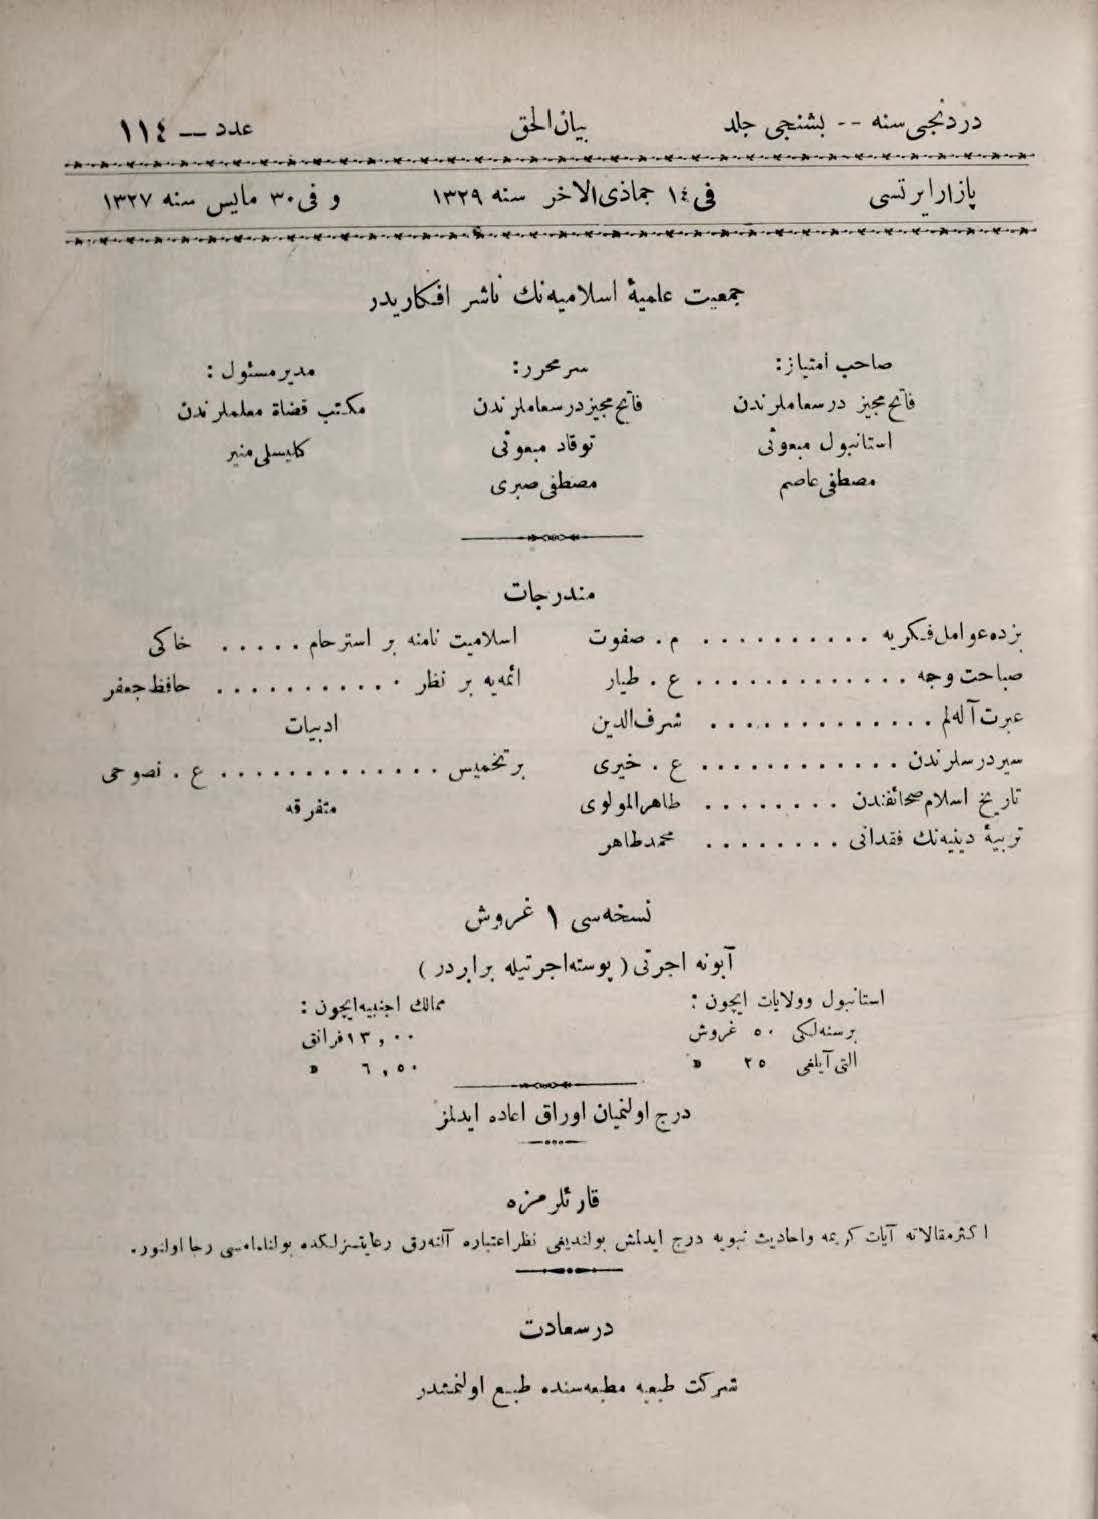 دردنجی سنه -- بشنجی جلد بیان الحق عدد — ١١٤
پازار ایرتسی فی ١٤ جماذی الاخر سنه ١٣٢٩ و فی ٣٠ مایس سنه ١٣٢٧
جمعیت علمیۀ اسلامیه‌نك ناشر افکاریدر
صاحب امتیاز:
فاتح مجیز درسعاملرندن
استانبول مبعوثی
مصطفی عاصم
سر محرر:
فاتح مجیز درسعاملرندن
توقاد مبعوثی
مصطفی صبری
مدیر مسئول:
مکتب قضاة معلملرندن
کلیسلی منیر
مندرجات
بزده عوامل فکریه . . . . . . . . . . م . صفوت
صباحت وجه . . . . . . . . . . . . . ع . طیار
عبرت آله‌لم . . . . . . . . . . . . . شرف الدین
سیر درسلرندن . . . . . . . . . . . . ع . خیری
تاریخ اسلام صحائفندن . . . . . . . . طاهر المولوی
تربیۀ دینیه‌نك فقدانی . . . . . . . . محمد طاهر
اسلامیت نامنه بر استرحام . . . . . خاکی
ائمه‌یه بر نظر . . . . . . . . . . . حافظ جعفر
ادبیات
بر تخمیس . . . . . . . . . . . . . ع . نصوحی
متفرقه
نسخه‌سی ١ غروش
آبونه اجرتی ( پوسته اجرتیله برابردر )
استانبول وولایات ایچون :
بر سنه‌لکی ٥٠ غروش
التی آیلغی ٢٥ »
ممالك اجنبیه ایچون :
١٣,٠٠ فرانق
٦,٥٠ »
درج اولنمیان اوراق اعاده ایدلمز
قارئلرمزه
اکثر مقالاته آیات کریمه واحادیث نبویه درج ایدلمش بولندیغی نظر اعتباره آلنه‌رق رعایتسزلکده بولنامامسی رجا اولنور.
درسعادت
شرکت طبعیه مطبعه‌سنده طبع اولنمشدر